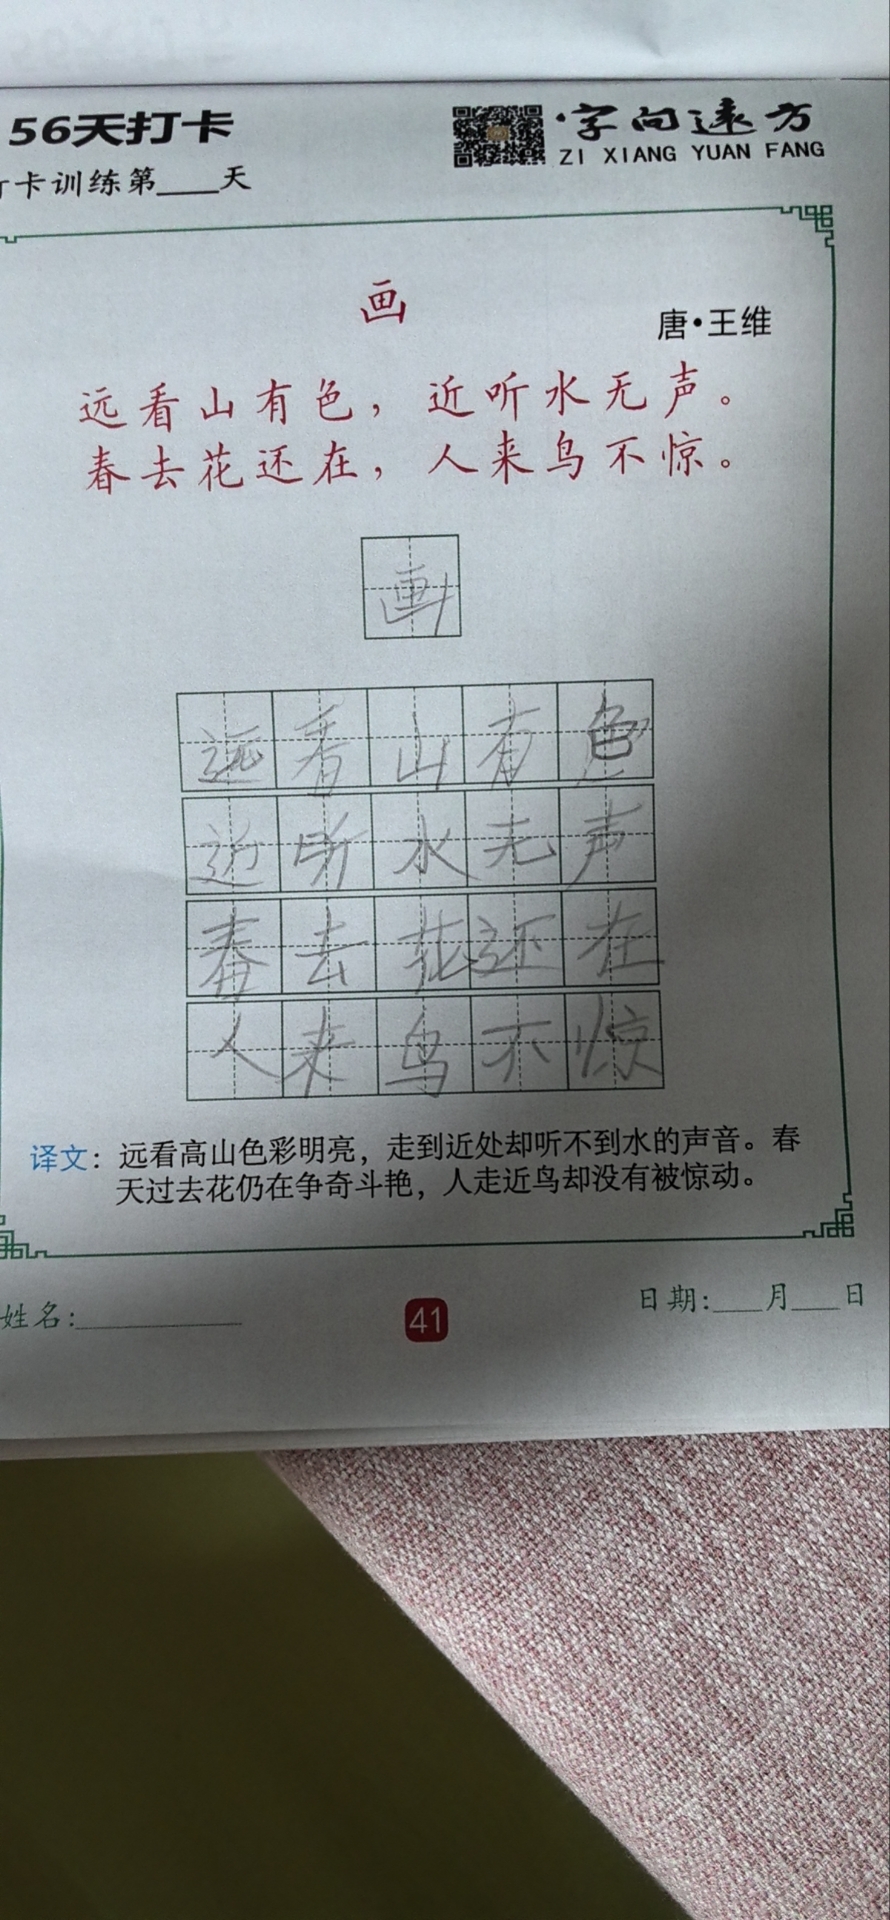 56天打卡
字向远方
ZI XIANG YUAN FANG
卡训练第____天
画
唐·王维
远看山有色，近听水无声。
春去花还在，人来鸟不惊。
画
远看山有色
近听水无声
春去花还在
人来鸟不惊
译文：远看高山色彩明亮，走到近处却听不到水的声音。春
天过去花仍在争奇斗艳，人走近鸟却没有被惊动。
姓名:
41
日期:___月___日